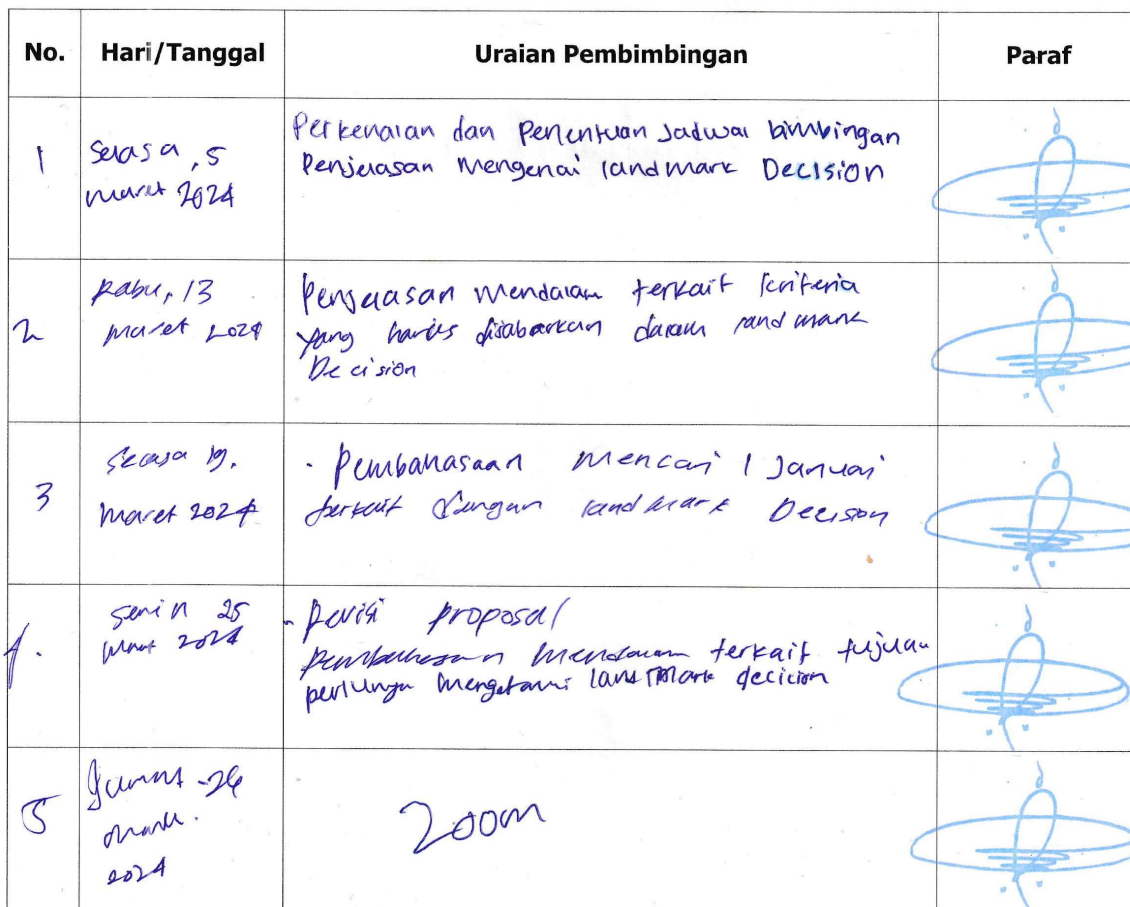 No. Hari/Tanggal Uraian Pembimbingan Paraf
1 Selasa, 5 Perkenalan dan Penentuan Jadwal bimbingan
maret 2024 Penjelasan Mengenai landmark Decision
2 Rabu, 13 Penjelasan mendalam terkait kriteria
maret 2024 yang harus dijabarkan dalam landmark
Decision
3 Selasa 19, - Pembahasaan mencari 1 Januari
maret 2024 terkait dengan landmark Decision
4. Senin 25 - Revisi proposal
maret 2024 pembahasan mendalam terkait tujuan
perlunya mengetahui landmark decicion
5 Jumat
2024
Zoom